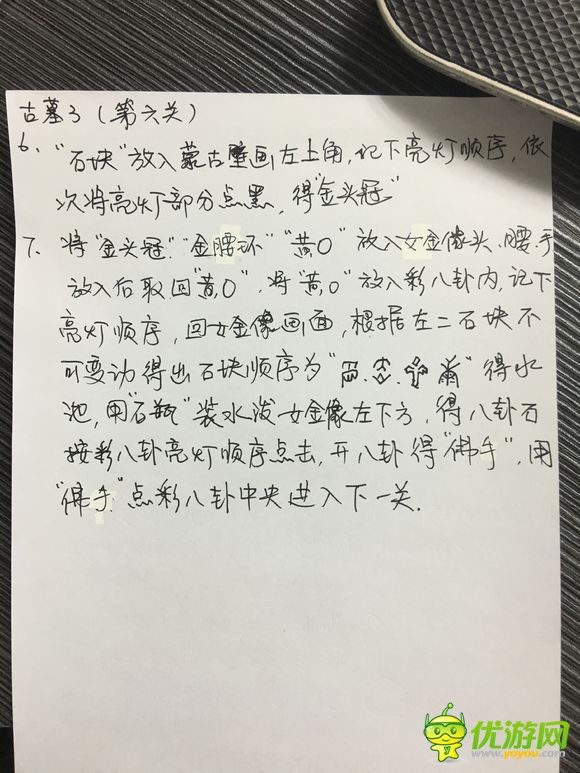 古墓3(第六关)
6、"石块"放入蒙古壁画左上角,记下亮灯顺序,依
次将亮灯部分点黑,得"金头冠"
7、将"金头冠""金腰环""黄O"放入女金像头、腰、手
放入后取回"黄O",将"黄O"放入彩八卦内,记下
亮灯顺序,回女金像画面,根据左二石块不
可变动得出石块顺序为" "得水
池,用"石瓶"装水泼女金像左下方,得八卦石
按彩八卦亮灯顺序点击,开八卦得"佛手",用
"佛手"点彩八卦中央进入下一关.
优游网
www.yoyou.com